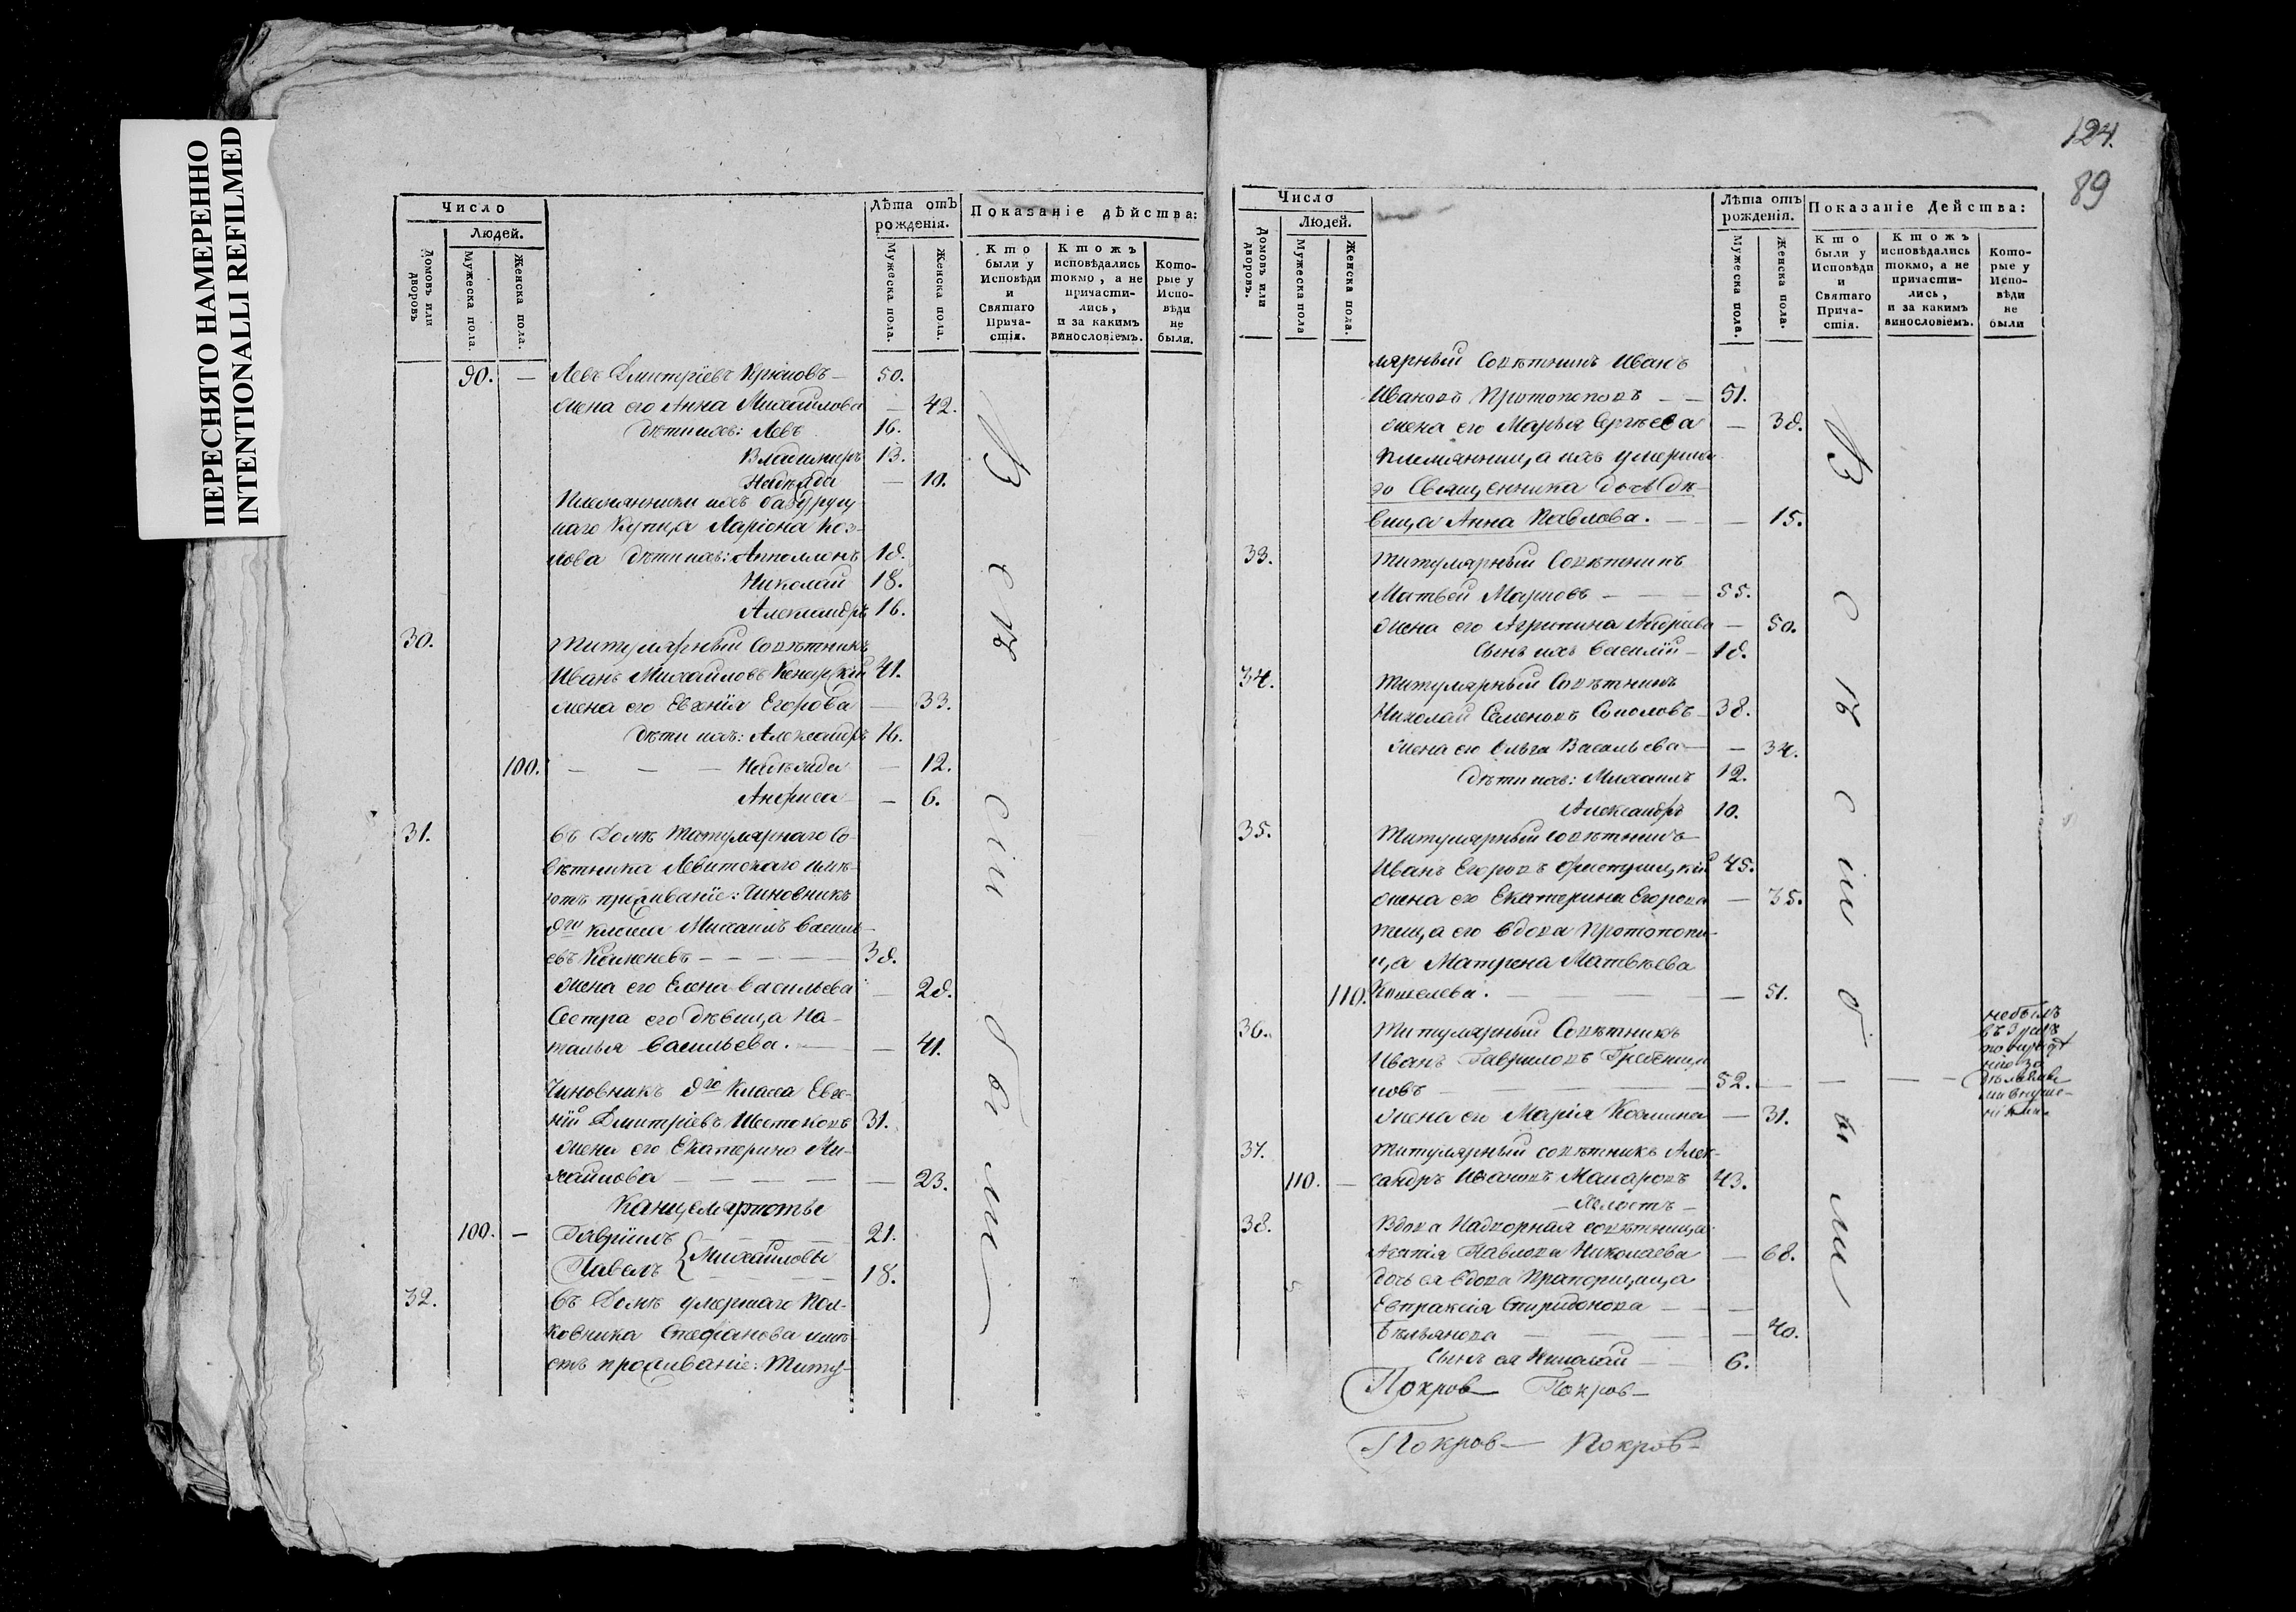 ПЕРЕСНЯТО НАМЕРЕННО
INTENTIONALLI REFILMED
Число
Людей.
Домовъ или дворовъ
Мужеска пола.
Женска пола.
Лѣта отъ рожденія.
Мужеска пола.
Женска пола.
Показаніе дѣйства:
Кто были у Исповѣди и Святаго Прича-стія.
Ктожъ исповѣдались токмо, а не причасти-лись, и за какимъ винословіемъ.
Кото-рые у Испо-вѣди не были.
90. — Левъ Дмитріевъ Крюковъ — 50.
жена его Анна Михайлова — 42.
дѣти ихъ: Левъ 16.
Владимиръ 13.
Надежда — 10.
Племянники ихъ
наго Купца Ларіона Коз-
лова дѣти ихъ: Апполлонъ 18.
Николай 18.
Александръ 16.
30. Титулярный Совѣтникъ
Иванъ Михайловъ 41.
жена его Евгенія Егорова — 33.
дѣти ихъ: Александръ 16.
100. — — — Надежда — 12.
Анфиса — 6.
31. Въ Домѣ Титулярнаго Со-
вѣтника Левитскаго имѣ-
ютъ проживаніе: Чиновникъ
8го класса Михаилъ Василь-
евъ — — — 38.
жена его Елена Васильева — 28.
Сестра его дѣвица На-
талья Васильева. — — 41.
Чиновникъ 8го Класса Евге-
ній Дмитріевъ Шестоковъ 31.
жена его Екатерина Ми-
хайлова — — — — 23.
Канцеляристы
100. — Гавріилъ — — 21.
Павелъ { Михайловы 18.
32. Въ Домѣ умершаго Пол-
ковника Стефанова имѣ-
етъ проживаніе: Титу-
Всѣ сіи были
124.
89
Число
Людей.
Домовъ или дворовъ.
Мужеска пола
Женска пола.
Лѣта отъ рожденія.
Мужеска пола.
Женска пола.
Показаніе Действа:
Кто были у Исповѣди и Святаго Прича-стія.
Ктожъ исповѣдались токмо, а не причасти-лись, и за какимъ винословіемъ.
Кото-рые у Испо-вѣди не были
лярный Совѣтникъ Иванъ
Ивановъ Протопоповъ — — 51.
жена его Марья Сергѣева — 38.
Племянница ихъ умерша-
го Священника дочь дѣ-
вица Анна Павлова. — — 15.
33. Титулярный Совѣтникъ
Матвей Марковъ — — — 55.
жена его Агрипина Андреева — 50.
Сынъ ихъ Василій — 18.
34. Титулярный Совѣтникъ
Николай Семеновъ Соколовъ 38.
жена его Ольга Васильева — — 34.
дѣти ихъ: Михаилъ 12.
Александръ 10.
35. Титулярный совѣтникъ
Иванъ Егоровъ 45.
жена его Екатерина Егорова — 35.
теща его вдова Протопопи-
ца Матрена Матвѣева
110. Кошелева. — — — 51.
36. Титулярный Совѣтникъ
Иванъ Гавриловъ Гребенщи
ковъ — — — 52. — — — —
небылъ
въ
за
жена его Марія Козмина — 31.
37. Титулярный совѣтникъ Алек-
110. — сандръ Ивановъ Макаровъ 43.
— Холостъ —
38. Вдова Надворная совѣтница
Агапія Павлова Николаева — 68.
дочь ея вдова Прапорщица
Евпраксія Спиридонова — —
— — — 40.
Сынъ ея Николай — — 6.
Всѣ сіи были
Покров Покров
Покров Покров